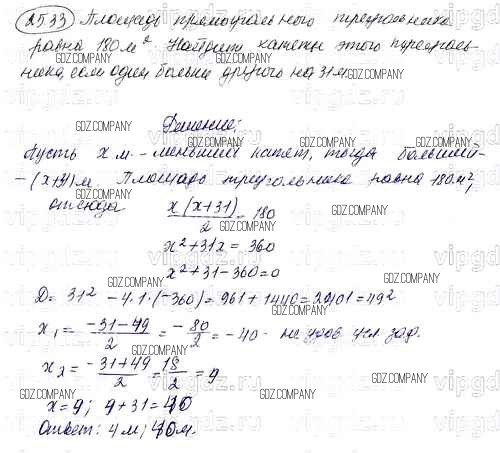 25.33 Площадь прямоугольного треугольника
равна 180 м². Найдите катеты этого треуголь-
ника, если один больше другого на 31 м.
Решение:
Пусть x м. - меньший катет, тогда больший -
- (x+31) м Площадь треугольника равна 180 м²,
отсюда x(x+31)/2 = 180
x²+31x = 360
x²+31-360=0
D= 31² - 4·1·(-360)= 961+1440=2401=49²
x₁ = -31-49/2 = -80/2 = -40 - не удов усл зад.
x₂ = -31+49/2 = 18/2 = 9
x=9; 9+31=40
Ответ: 4 м; 40 м.
GDZ.COMPANY
vipgdz